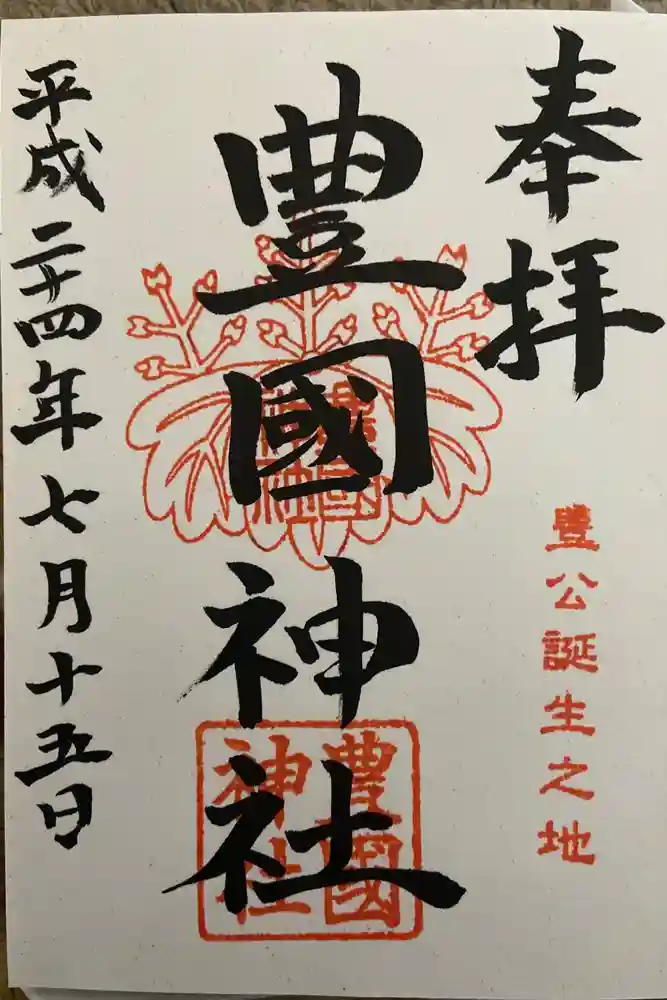 奉拝
豊公誕生之地
豊國神社
豊國
神社
豊國
神社
平成二十四年七月十五日